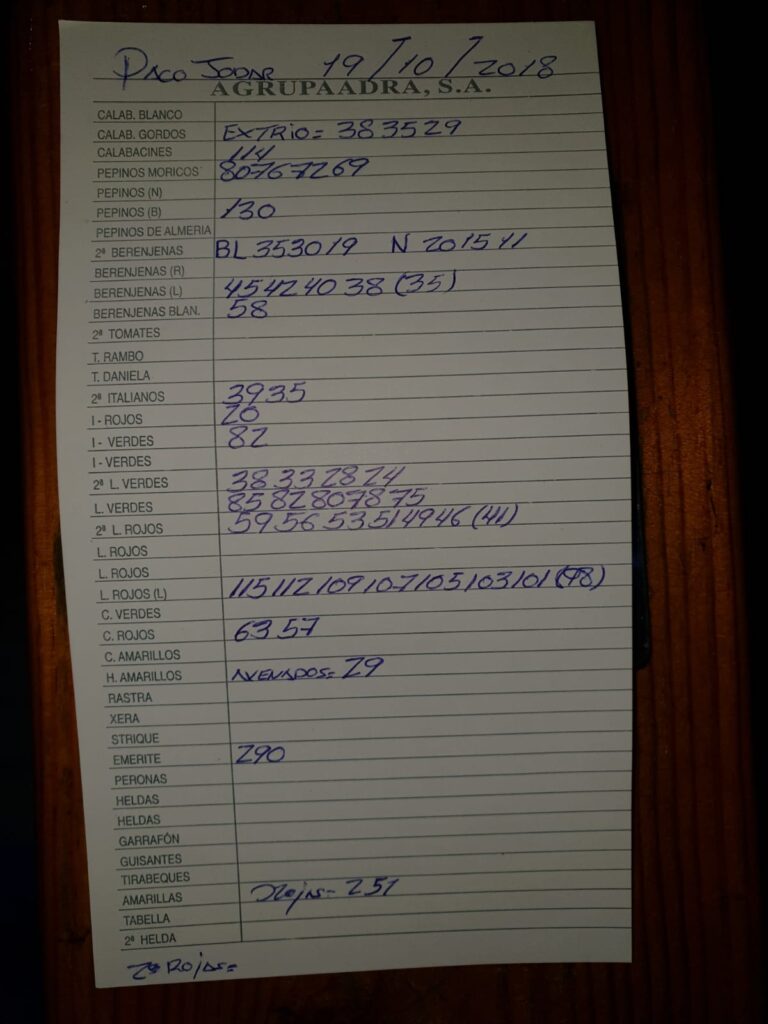 PACO JODAR 19/10/2018
AGRUPAADRA, S.A.
CALAB. BLANCO
CALAB. GORDOS EXTRIO= 38 35 29
CALABACINES 114
PEPINOS MORICOS 80 76 72 69
PEPINOS (N)
PEPINOS (B) 130
PEPINOS DE ALMERIA
2ª BERENJENAS BL 35 30 19 N 20 15 11
BERENJENAS (R)
BERENJENAS (L) 45 42 40 38 (35)
BERENJENAS BLAN. 58
2ª TOMATES
T. RAMBO
T. DANIELA
2ª ITALIANOS 39 35
I - ROJOS 20
I - VERDES 82
I - VERDES
2ª L. VERDES 38 33 28 24
L. VERDES 85 82 80 78 75
2ª L. ROJOS 59 56 53 51 49 46 (41)
L. ROJOS
L. ROJOS
L. ROJOS (L) 115 112 109 107 105 103 101 (98)
C. VERDES
C. ROJOS 63 57
C. AMARILLOS
H. AMARILLOS AVENADOS= 29
RASTRA
XERA
STRIQUE
EMERITE 290
PERONAS
HELDAS
HELDAS
GARRAFÓN
GUISANTES
TIRABEQUES
AMARILLAS Rojas= 251
TABELLA
2ª HELDA
2ª ROJAS=